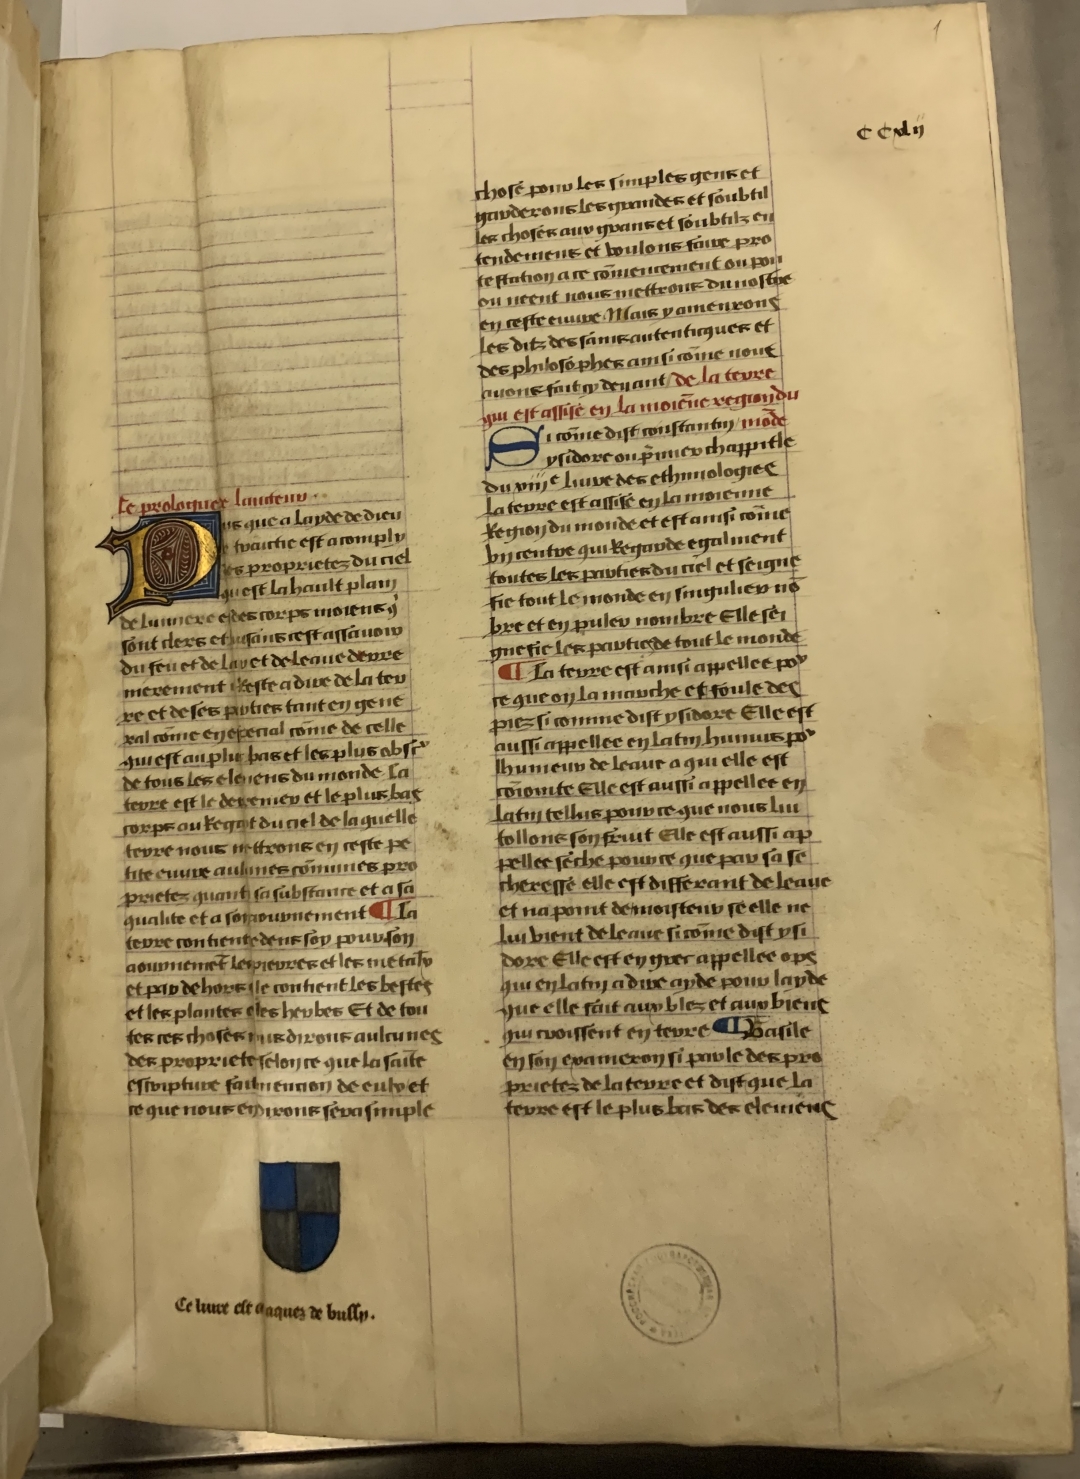 1
CCxlii
Le prologue de lacteur
Puis que a layde de dieu
le traictie est acomply
des proprietez du ciel
qui est la hault plain
de lumiere et des corps moiens q̄
sont clers et luisans cest assauoir
du feu et de lair et de leaue derre
nierement reste a dire de la ter
re et de ses parties tant en gene
ral cōme en especial cōme de celle
qui est au plus bas et les plus obscr
de tous les elemens du monde La
terre est le derrenier et le plus bas
corps au Regart du ciel de laquelle
terre nous mettrons en ceste pe
tite euure aulcunes cōmunes pro
prietez quant a sa substance et a sa
qualite et a son aournement ¶ La
terre contient dedens soy pour son
aournemēt les pierres et les metalx
et par dehors elle contient les bestes
et les plantes et les herbes Et de tou
tes ces choses nous dirons aulcunes
des proprietez selon ce que la saīte
escripture fait mencion de eulx et
ce que nous en dirons sera simple
chose pour les simples gens et
garderons les grandes et soubtil
les choses aux grans et soubtilz en
tendemens et voulons faire pro
testation a ce cōmencement ou pou
ou neent nous mettrons du nostre
en ceste euure Mais y amenrons
les ditz des sains autenticques et
des philosophes ainsi cōme nous
auons fait cy deuant / de la terre
qui est assise en la moiēne region du
Si cōme dist constantin / mōde
ysidore ou p̄mier chappitle
du viiie liure des ethimologies
la terre est assise en la moienne
Region du monde et est ainsi cōme
vn centre qui Regarde egalment
toutes les parties du ciel et seigne
fie tout le monde en singulier nō
bre et en puler nombre Elle sei
gnefie les parties de tout le monde
¶ La terre est ainsi appellee por
ce que on la marche et foule des
piez si comme dist ysidore Elle est
aussi appellee en latin humus por
lhumeur de leaue a qui elle est
cōiointe Elle est aussi appellee en
latin tellus pour ce que nous lui
tollons son fruit Elle est aussi ap
pellee seche pour ce que par sa se
cheresse elle est differant de leaue
et na point de moisteur se elle ne
lui vient de leaue si cōme dist ysi
dore Elle est en grec appellee ops
qui en latin a dire ayde pour layde
que elle fait aux blez et aux biens
qui croissent en terre ¶ Basile
en son exameron si parle des pro
prietez de la terre et dist que la
terre est le plus bas des elemēns
Ce liure est a iaques de bussy.